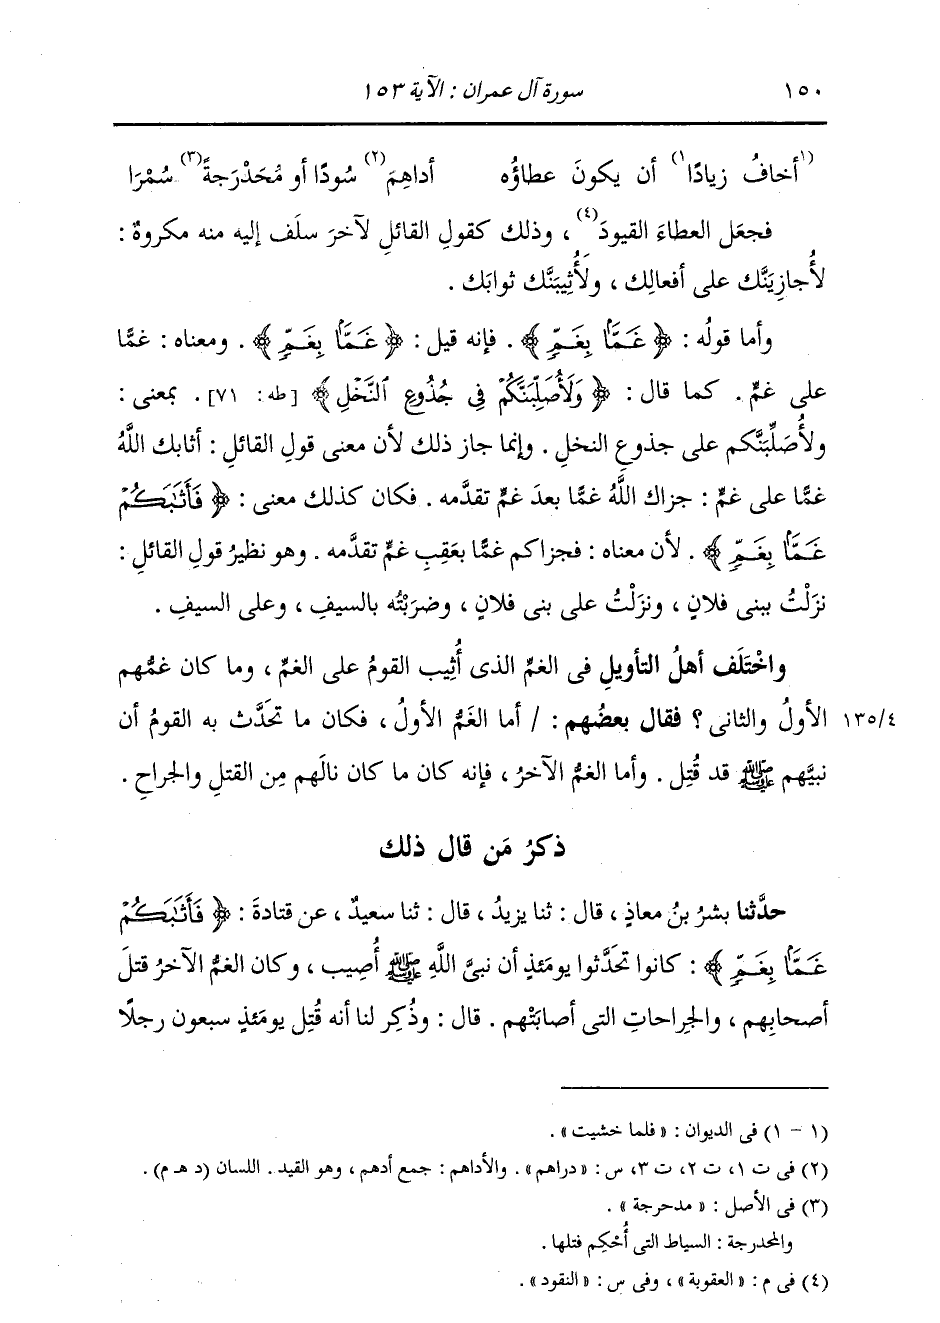 ١٥٠ سورة آل عمران : الآية ١٥٣
(١)أخافُ زيادًا(١) أن يكونَ عطاؤُه أداهِمَ(٢) سُودًا أو مُحَدْرَجةً(٣) سُمْرَا
فجعَل العطاءَ القيودَ(٤) ، وذلك كقولِ القائلِ لآخرَ سلَف إليه منه مكروهٌ :
لأُجازِيَنَّك على أفعالِك ، ولأُثِيبَنَّك ثوابَك .
وأما قولُه : ﴿ غَمًّا بِغَمٍّ ﴾ . فإنه قيل : ﴿ غَمًّا بِغَمٍّ ﴾ . ومعناه : غمًّا
على غمٍّ . كما قال : ﴿ وَلَأُصَلِّبَنَّكُمْ فِي جُذُوعِ ٱلنَّخْلِ ﴾ [طه : ٧١] . بمعنى :
ولأُصَلِّبَنَّكم على جذوعِ النخلِ . وإنما جاز ذلك لأن معنى قولِ القائلِ : أثابك اللَّهُ
غمًّا على غمٍّ : جزاك اللَّهُ غمًّا بعدَ غمٍّ تقدَّمه . فكان كذلك معنى : ﴿ فَأَثَٰبَكُمْ
غَمًّا بِغَمٍّ ﴾ . لأن معناه : فجزاكم غمًّا بعَقِبِ غمٍّ تقدَّمه . وهو نظيرُ قولِ القائلِ :
نزَلْتُ ببنى فلانٍ ، ونزَلْتُ على بنى فلانٍ ، وضرَبْتُه بالسيفِ ، وعلى السيفِ .
واخْتَلَف أهلُ التأويلِ فى الغمِّ الذى أُثِيب القومُ على الغمِّ ، وما كان غمُّهم
الأولُ والثانى ؟ فقال بعضُهم : / أما الغَمُّ الأولُ ، فكان ما تحَدَّث به القومُ أن ١٣٥/٤
نبيَّهم ﷺ قد قُتِل . وأما الغمُّ الآخرُ ، فإنه كان ما كان نالَهم مِن القتلِ والجراحِ .
ذكرُ مَن قال ذلك
حدَّثنا بشرُ بنُ معاذٍ ، قال : ثنا يزيدُ ، قال : ثنا سعيدٌ ، عن قتادةَ : ﴿ فَأَثَٰبَكُمْ
غَمًّا بِغَمٍّ ﴾ : كانوا تحَدَّثوا يومَئذٍ أن نبىَّ اللَّهِ ﷺ أُصِيب ، وكان الغمُّ الآخرُ قتلَ
أصحابِهم ، والجِراحاتِ التى أصابَتْهم . قال : وذُكِر لنا أنه قُتِل يومَئذٍ سبعون رجلًا
(١ - ١) فى الديوان : « فلما خشيت » .
(٢) فى ت ١، ت ٢، ت ٣، س : « دراهم » . والأداهم : جمع أدهم ، وهو القيد . اللسان (د هـ م) .
(٣) فى الأصل : « مدحرجة » .
والمحدرجة : السياط التى أُحْكِم فتلها .
(٤) فى م : « العقوبة » ، وفى س : « النقود » .